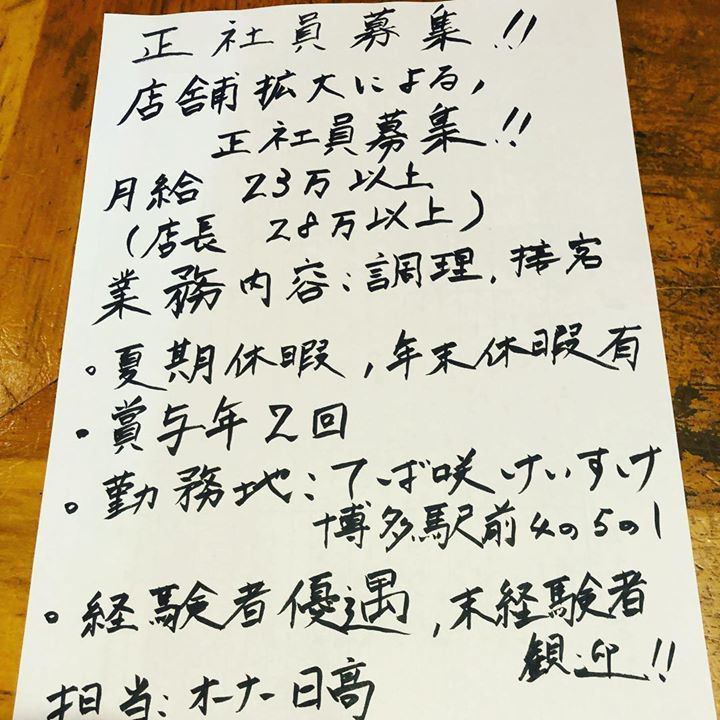 正社員募集!!
店舗拡大による,
正社員募集!!
月給 23万以上
(店長 28万以上)
業務内容:調理,接客
・夏期休暇,年末休暇有
・賞与年2回
・勤務地:てば咲けいすけ
博多駅前4の5の1
・経験者優遇,末経験者
観迎!!
担当:オーナー日高